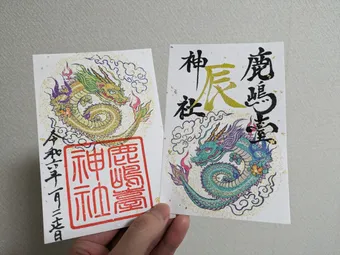 鹿嶋臺
神社
令和六年一月
鹿嶋臺
辰
神社